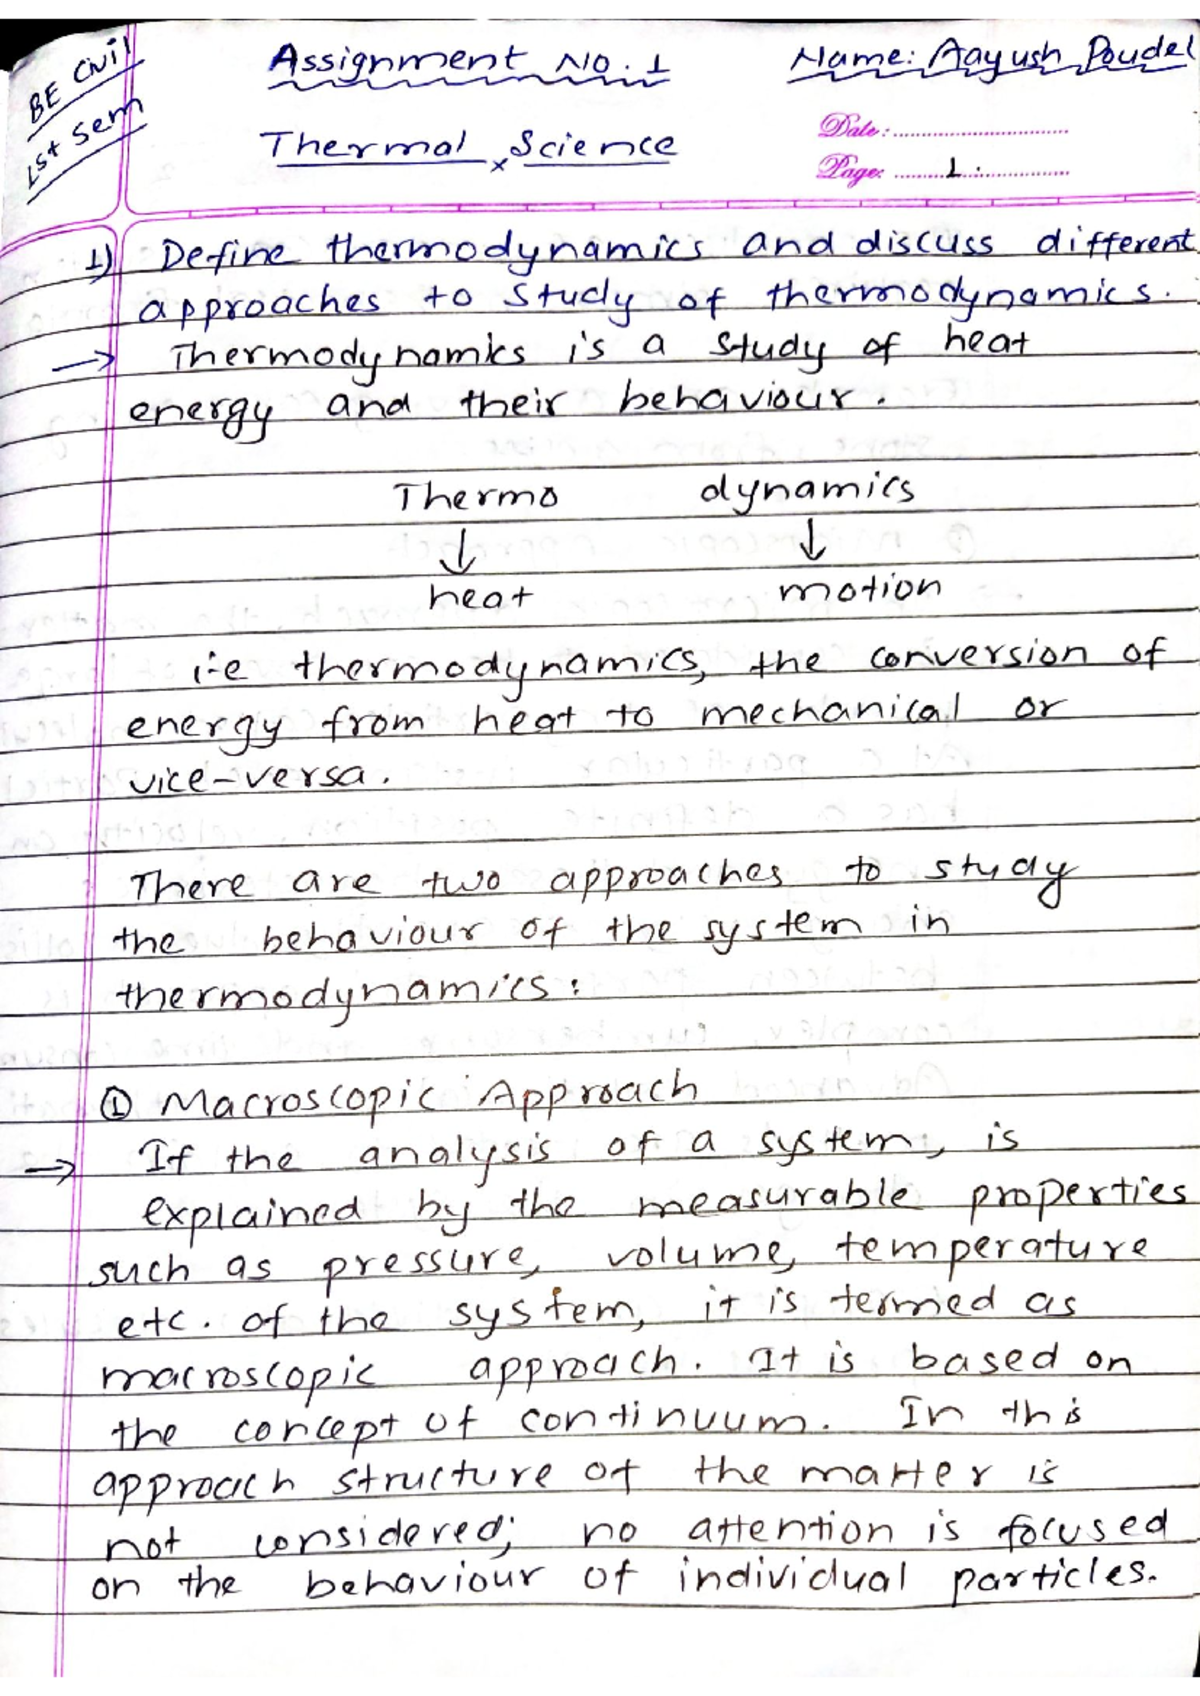 BE Civil
1st Sem
Assignment NO. 1
Name: Aayush Poudel
Thermal Science
Date:
Page: 1.
1) Define thermodynamics and discuss different
approaches to study of thermodynamics.
→ Thermodynamics is a study of heat
energy and their behaviour.
Thermo dynamics
↓ ↓
heat motion
i.e thermodynamics, the conversion of
energy from heat to mechanical or
vice-versa.
There are two approaches to study
the behaviour of the system in
thermodynamics:
① Macroscopic Approach
→ If the analysis of a system, is
explained by the measurable properties
such as pressure, volume, temperature
etc. of the system, it is termed as
macroscopic approach. It is based on
the concept of continuum. In this
approach structure of the matter is
not considered; no attention is focused
on the behaviour of individual particles.